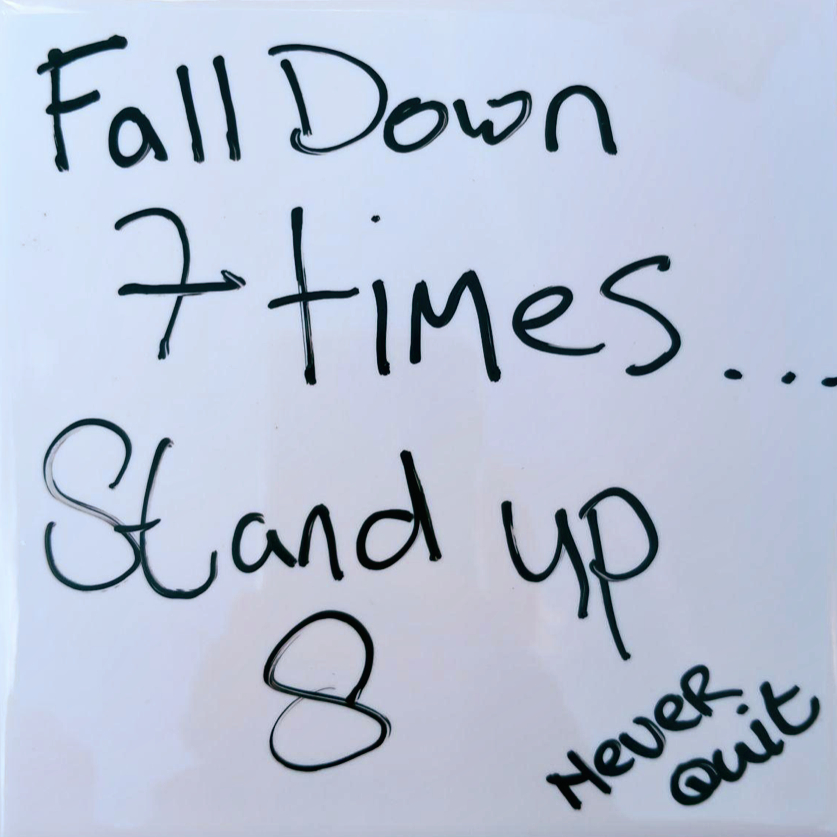 Fall Down
7 times...
Stand up
8
Never
Quit